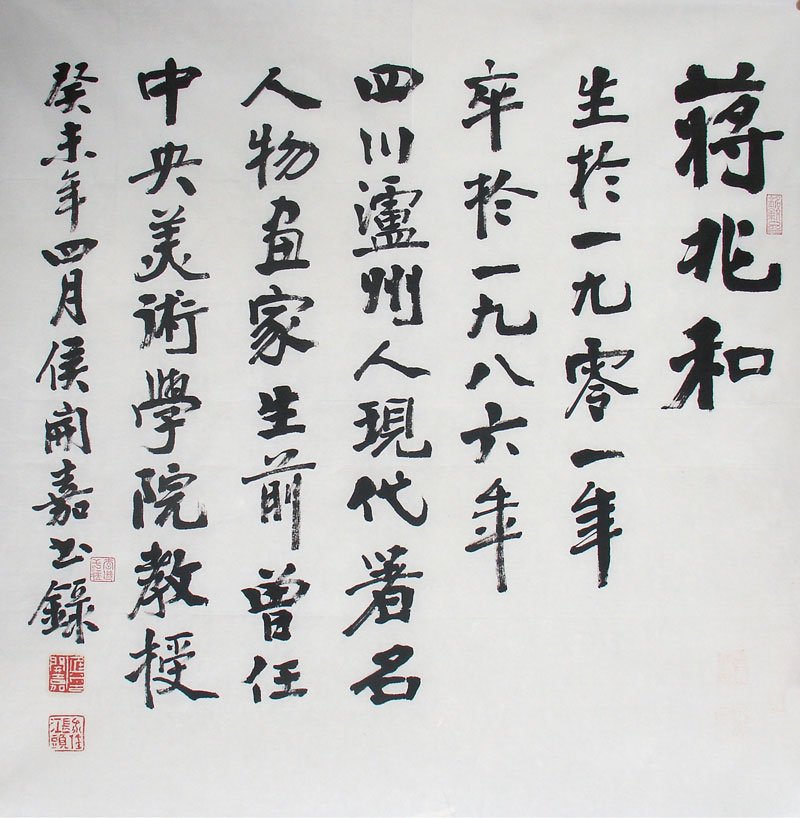 蔣兆和
生於一九零一年
卒於一九八六年
四川瀘州人現代著名
人物畫家生前曾任
中央美術學院教授
癸未年四月侯開嘉書錄
家住長江頭